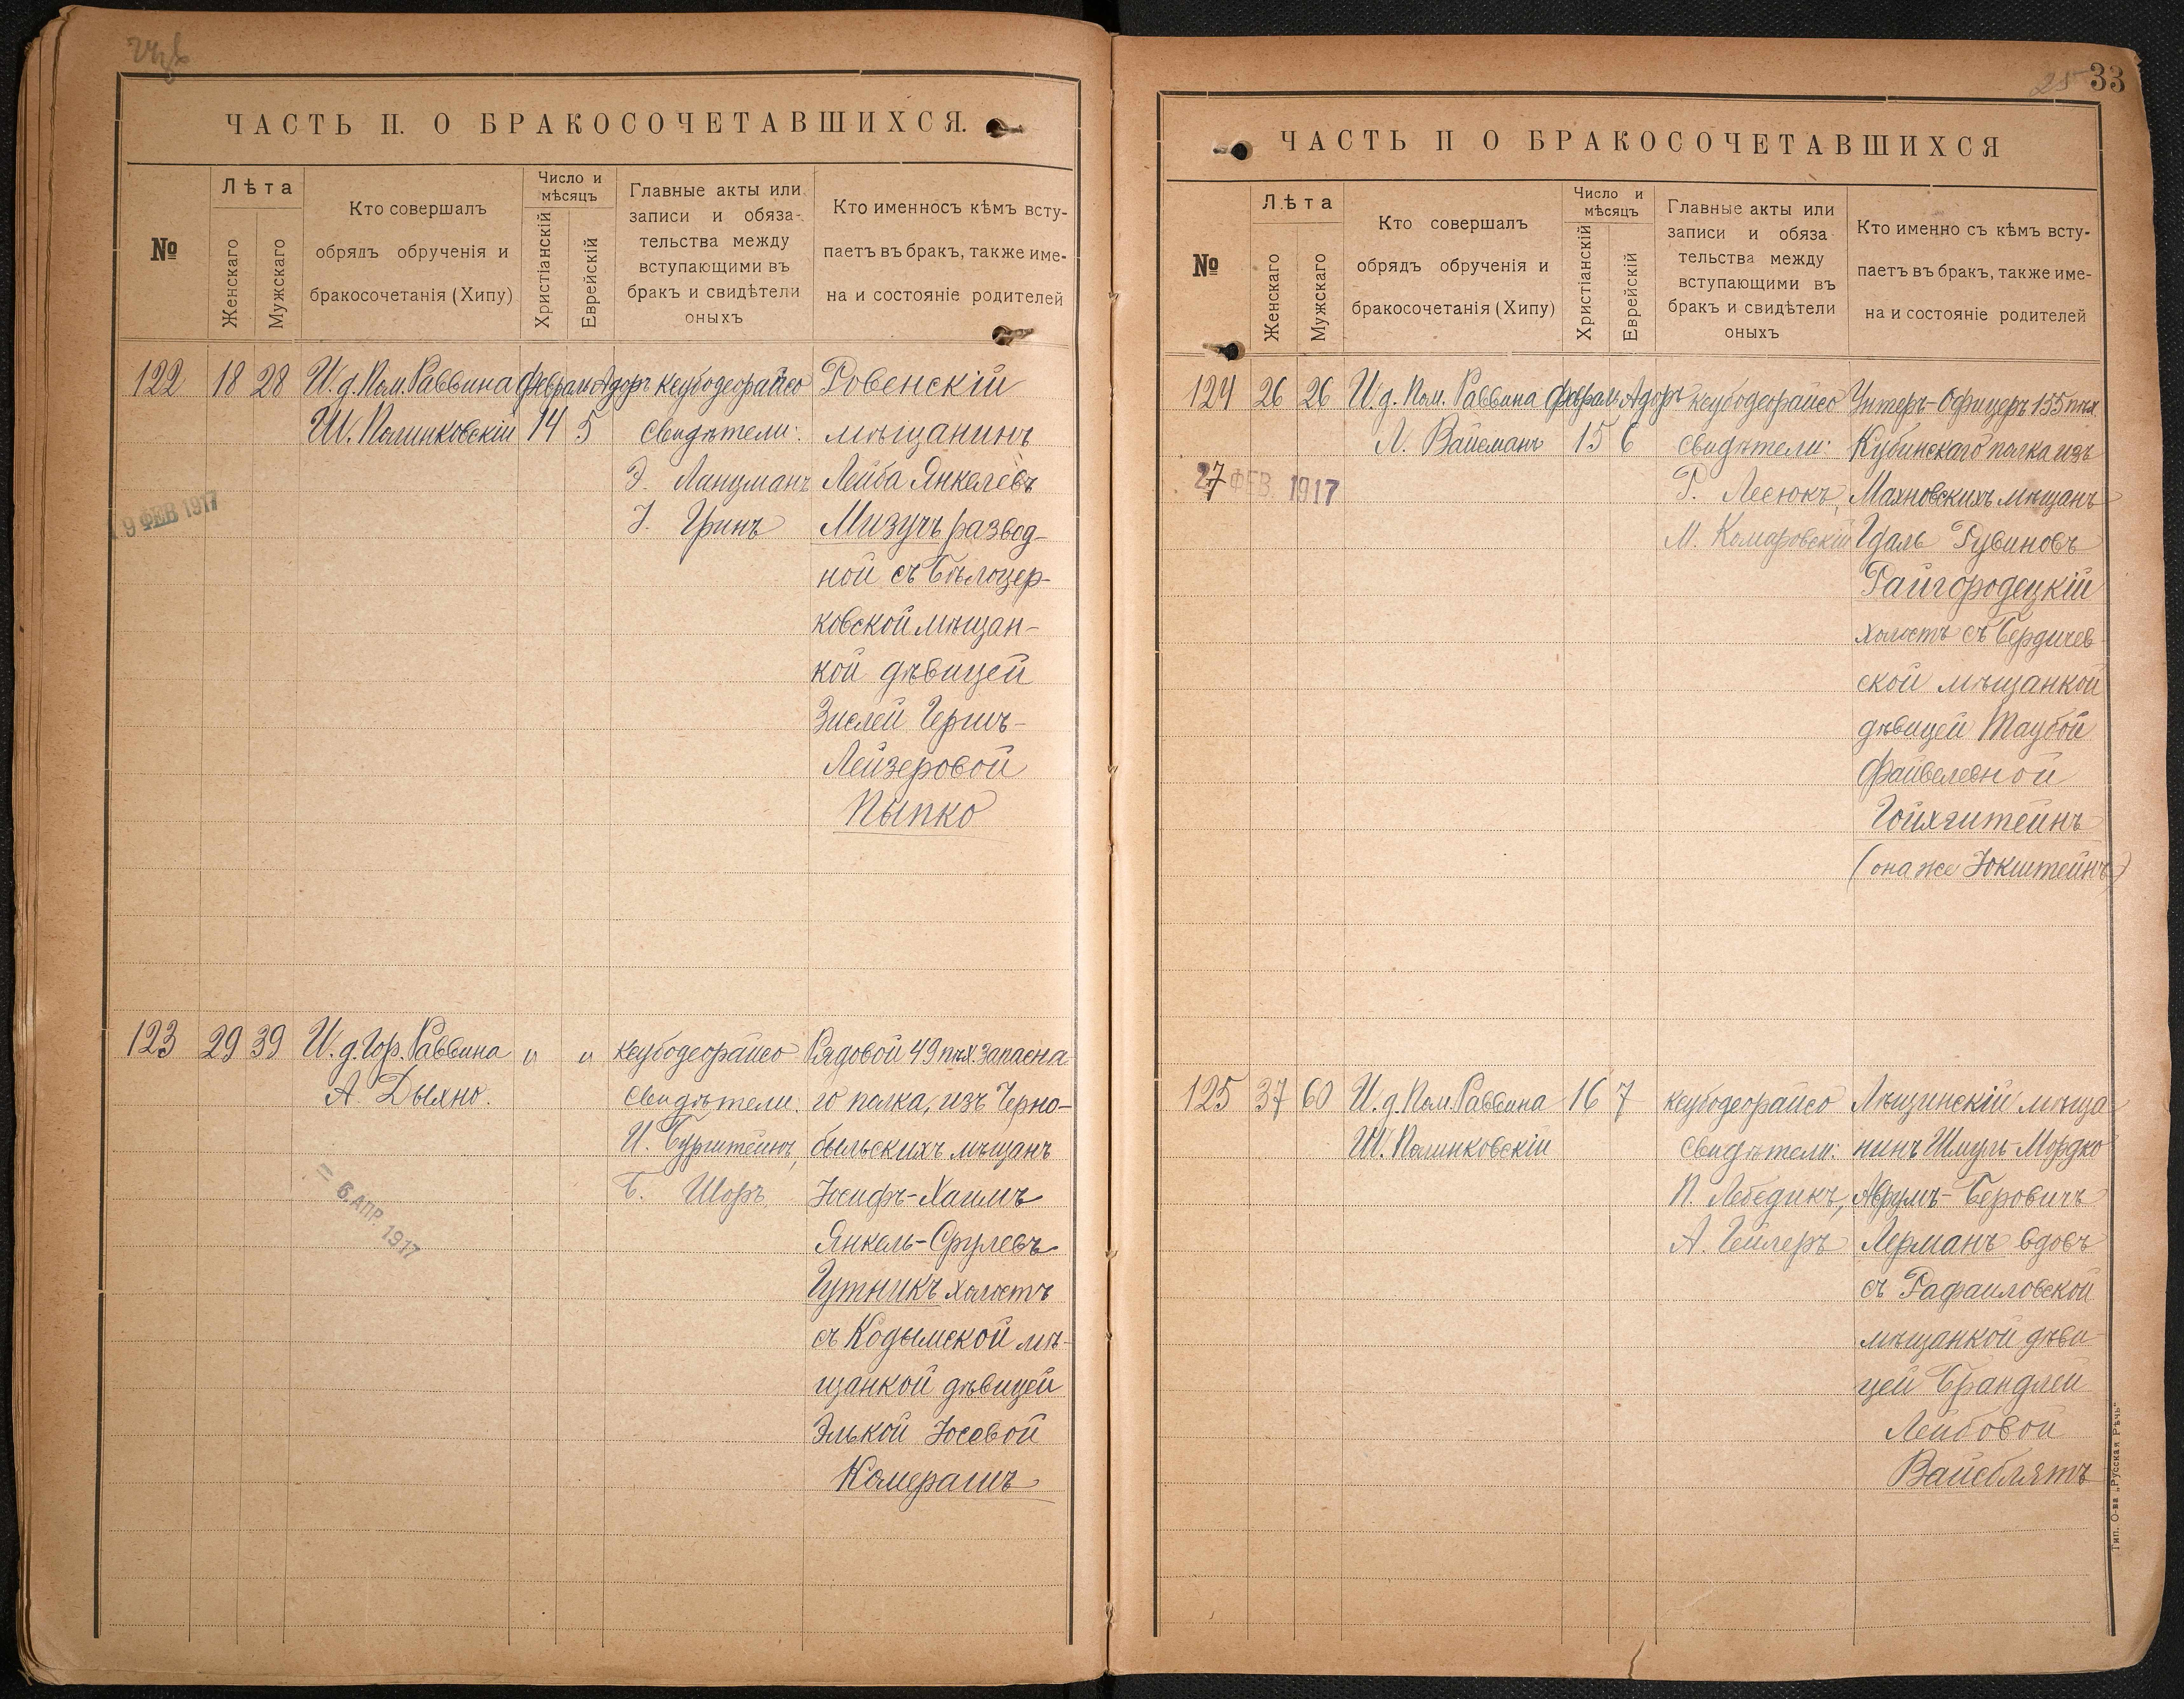 ЧАСТЬ II. О БРАКОСОЧЕТАВШИХСЯ.
№
Лѣта
Женскаго
Мужскаго
Кто совершалъ
обрядъ обрученія и
бракосочетанія (Хипу)
Число и
мѣсяцъ
Христіанскій
Еврейскій
Главные акты или
записи и обяза-
тельства между
вступающими въ
бракъ и свидѣтели
оныхъ
Кто именносъ кѣмъ всту-
паетъ въ бракъ, также име-
на и состояніе родителей
122
18
28
И. д. Пом. Раввина
Ш. Полинковскій
Февраль
14
Адоръ
5
ксубодеорайсо
Свидѣтели:
Э. Ланцманъ
І. Гринъ
Ровенскій
мѣщанинъ
Лейба Янкелевъ
Мизучъ развод-
ной съ Бѣлоцер-
ковской мѣщан-
кой дѣвицей
Зислей Герш-
Лейзеровой
Пыпко
19 ФЕВ 1917
123
29
39
И. д. Гор. Раввина
А. Дыхно.
"
"
ксубодеорайсо
Свидѣтели:
И. Бурштейнъ,
Б. Шоръ
Рядовой 49 пѣх. запасна-
го полка, изъ Черно-
быльскихъ мѣщанъ
Іосифъ-Хаимъ
Янкель-Срулевъ
Гутникъ холостъ
съ Кодымской мѣ-
щанкой дѣвицей
Элькой Іосевой
Комерашъ
= 6. АПР. 1917
33
ЧАСТЬ II О БРАКОСОЧЕТАВШИХСЯ
№
Лѣта
Женскаго
Мужскаго
Кто совершалъ
обрядъ обрученія и
бракосочетанія (Хипу)
Число и
мѣсяцъ
Христіанскій
Еврейскій
Главные акты или
записи и обяза
тельства между
вступающими въ
бракъ и свидѣтели
оныхъ
Кто именно съ кѣмъ всту-
паетъ въ бракъ, также име-
на и состояніе родителей
124
26
26
И. д. Пом. Раввина
Л. Вайсманъ
Февраль
15
Адоръ
6
ксубодеорайсо
Свидѣтели:
Р. Лесюкъ,
М. Комаровскій
Унтеръ-Офицеръ 155 пѣх
Кубинскаго полка изъ
Махновскихъ мѣщанъ
Идаль Рувиновъ
Райгородецкій
холостъ съ Бердичев-
ской мѣщанкой
дѣвицей Таубой
Файвелевной
Гойхштейнъ
(она же Юкштейнъ)
27 ФЕВ. 1917
125
37
60
И. д. Пом. Раввина
Ш. Полинковскій
16
7
ксубодеорайсо
Свидѣтели:
П. Лебедикъ,
А. Гейлеръ
Лѣщинскій мѣща-
нинъ Шмуль-Мордко
Аврумъ-Беровичъ
Лерманъ вдовъ
съ Рафаиловской
мѣщанкой дѣви-
цей Брандлей
Лейбовой
Вайсблятъ
Тип. О-ва „Русская Рѣчь"